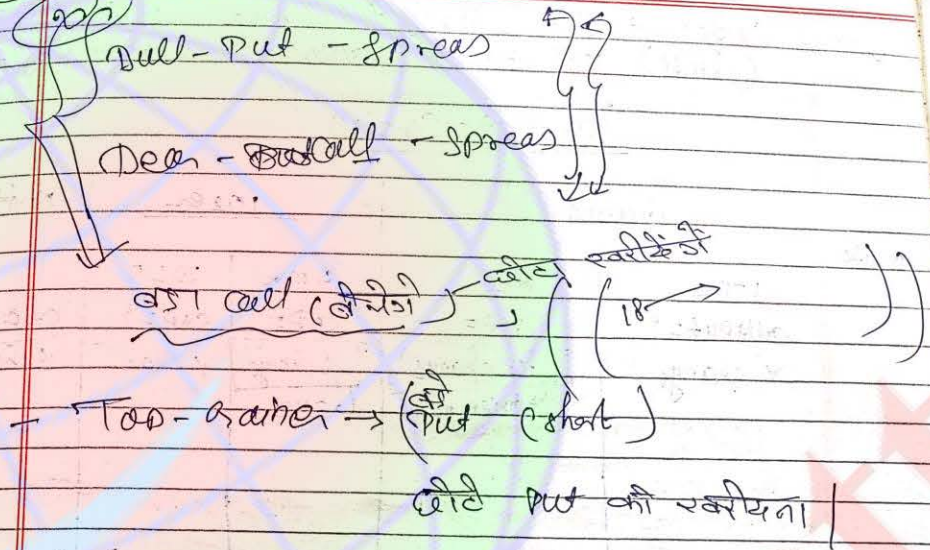 Bull-Put-Spreas
Bear-call-Spreas
बडा call (बेचेंगे) छोटा खरीदेंगे (18
- Top-Gainer → (बडे Put (short)
छोटे Put को खरीदना |